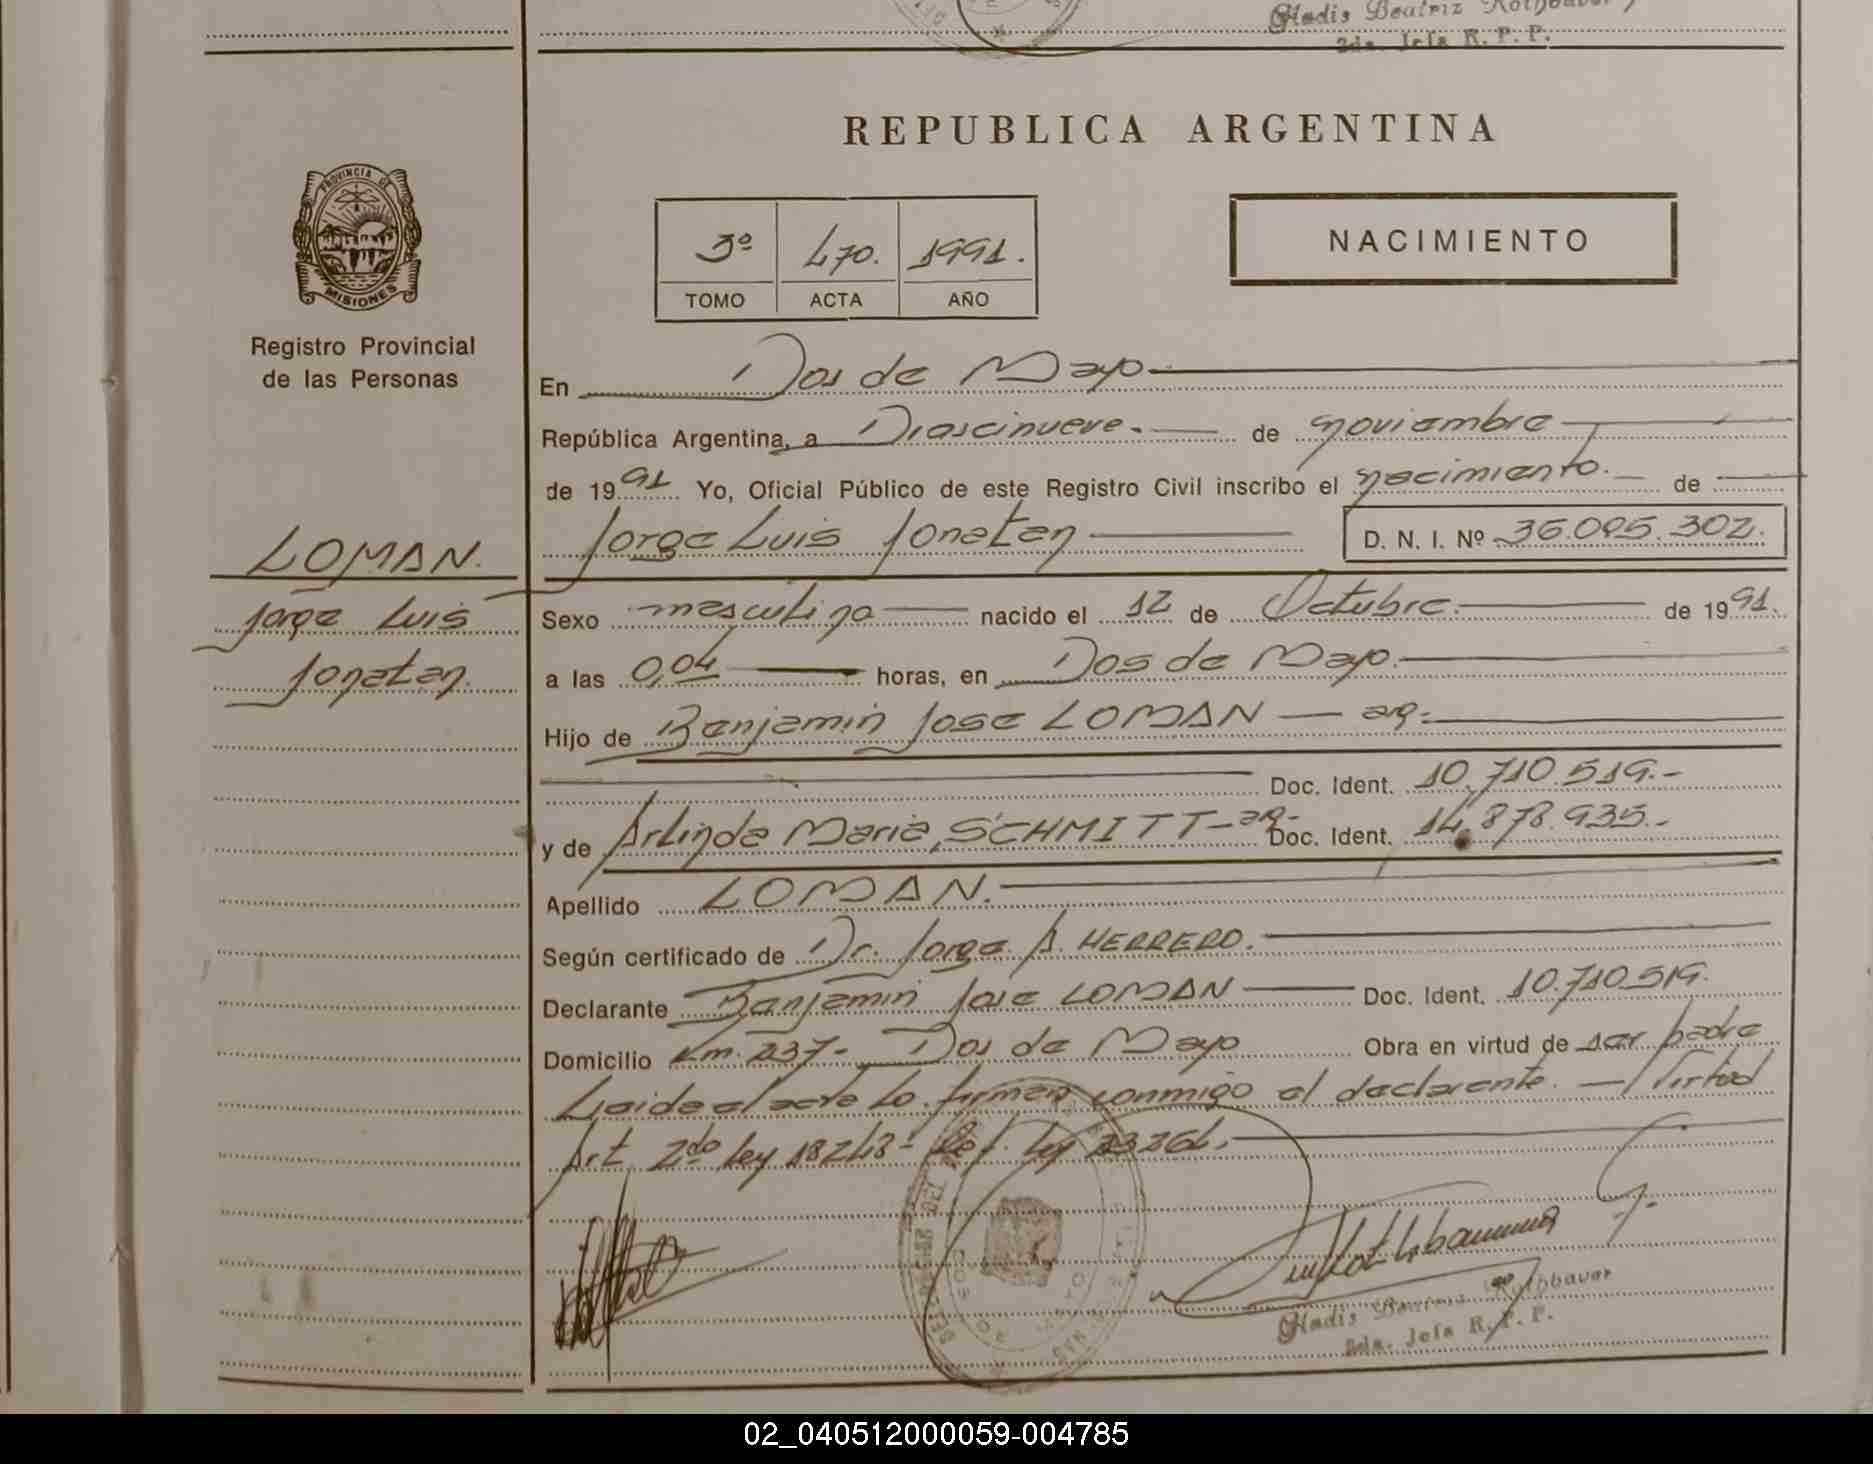 Gladis Beatriz Rothbauer
2da. Jefa R. P. P.
REPUBLICA ARGENTINA
PROVINCIA DE
MISIONES
Registro Provincial
de las Personas
3º 470. 1991.
TOMO ACTA AÑO
NACIMIENTO
En Dos de Mayo
República Argentina, a Diescinueve.- de noviembre
de 1991 Yo, Oficial Público de este Registro Civil inscribo el nacimiento. de
Jorge Luis Jonatan D. N. I. Nº 36.095.302.
LOMAN.
Jorge Luis
Jonatan.
Sexo masculino nacido el 12 de Octubre. de 1991.
a las 0,04 horas, en Dos de Mayo.
Hijo de Benjamin Jose LOMAN — arg.
Doc. Ident. 10.710.519.-
y de Arlinda Maria, SCHMITT - ar.- Doc. Ident. 14.878.935.-
Apellido LOMAN.
Según certificado de Dr. Jorge A. HERRERO.
Declarante Benjamin Jose LOMAN Doc. Ident. 10.710.519.
Domicilio Km. 237- Dos de Mayo Obra en virtud de ser padre
Leida el acta La firman conmigo el declarante. — Virtud
Art. 2do Ley 18248- Ley 23264.
Gladis Beatriz Rothbauer
2da. Jefa R. P. P.
02_040512000059-004785